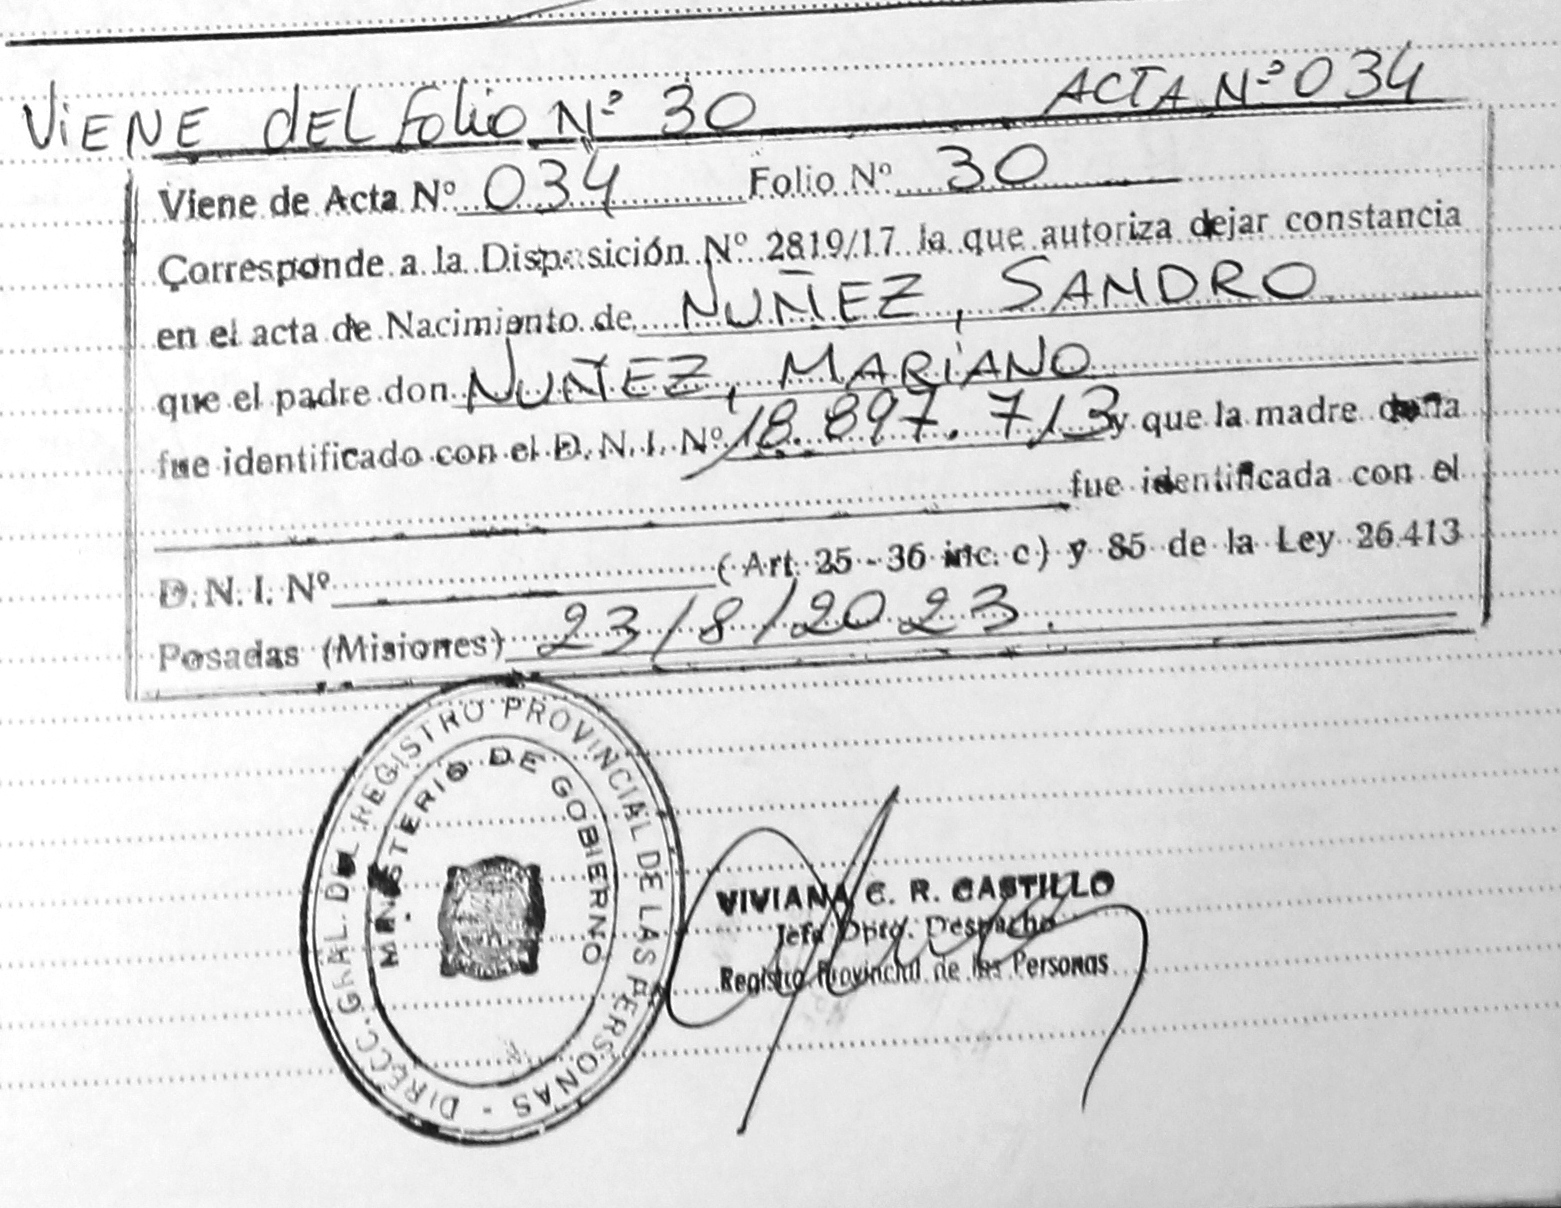 ViENE dEL foLiO Nº 30 ACTA Nº 034
Viene de Acta Nº 034 Folio Nº 30
Corresponde a la Disposición Nº 2819/17 la que autoriza dejar constancia
en el acta de Nacimiento de NUÑEZ, SANDRO
que el padre don NUÑEZ, MARiANO
fue identificado con el D.N.I. Nº 18.897.713 y que la madre doña
fue identificada con el
D.N.I. Nº (Art. 25 - 36 inc. c) y 85 de la Ley 26.413
Posadas (Misiones) 23/8/2023.
DIRECC. GRAL. DEL REGISTRO PROVINCIAL DE LAS PERSONAS -
MINISTERIO DE GOBIERNO
VIVIANA C. R. CASTILLO
Jefa Dpto. Despacho
Registro Provincial de las Personas